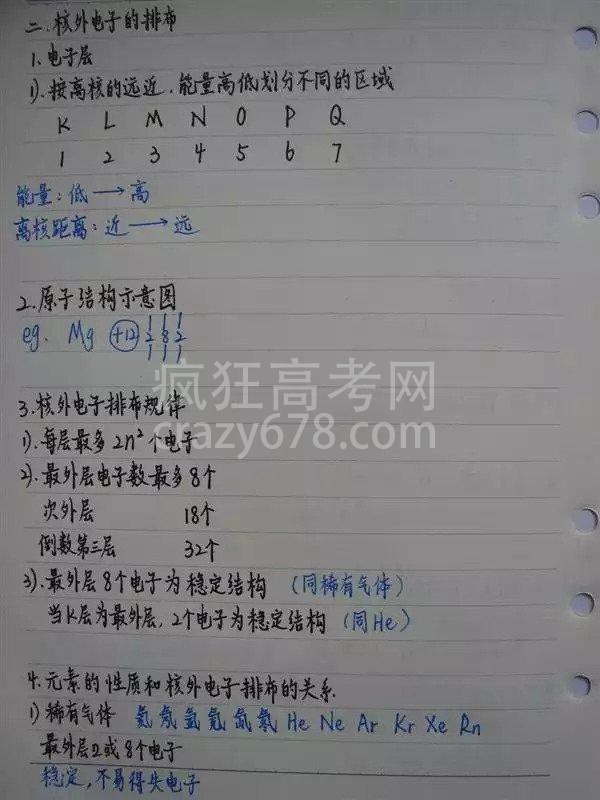 二.核外电子的排布
1.电子层
1).按离核的远近.能量高低划分不同的区域
K L M N O P Q
1 2 3 4 5 6 7
能量:低→高
离核距离:近→远
2.原子结构示意图
eg. Mg +12 2 8 2
疯狂高考网
crazy678.com
3.核外电子排布规律
1).每层最多2n²个电子
2).最外层电子数最多8个
次外层 18个
倒数第三层 32个
3).最外层8个电子为稳定结构 (同稀有气体)
当K层为最外层,2个电子为稳定结构 (同He)
4.元素的性质和核外电子排布的关系.
1)稀有气体 氦氖氩氪氙氡 He Ne Ar Kr Xe Rn
最外层2或8个电子
稳定,不易得失电子